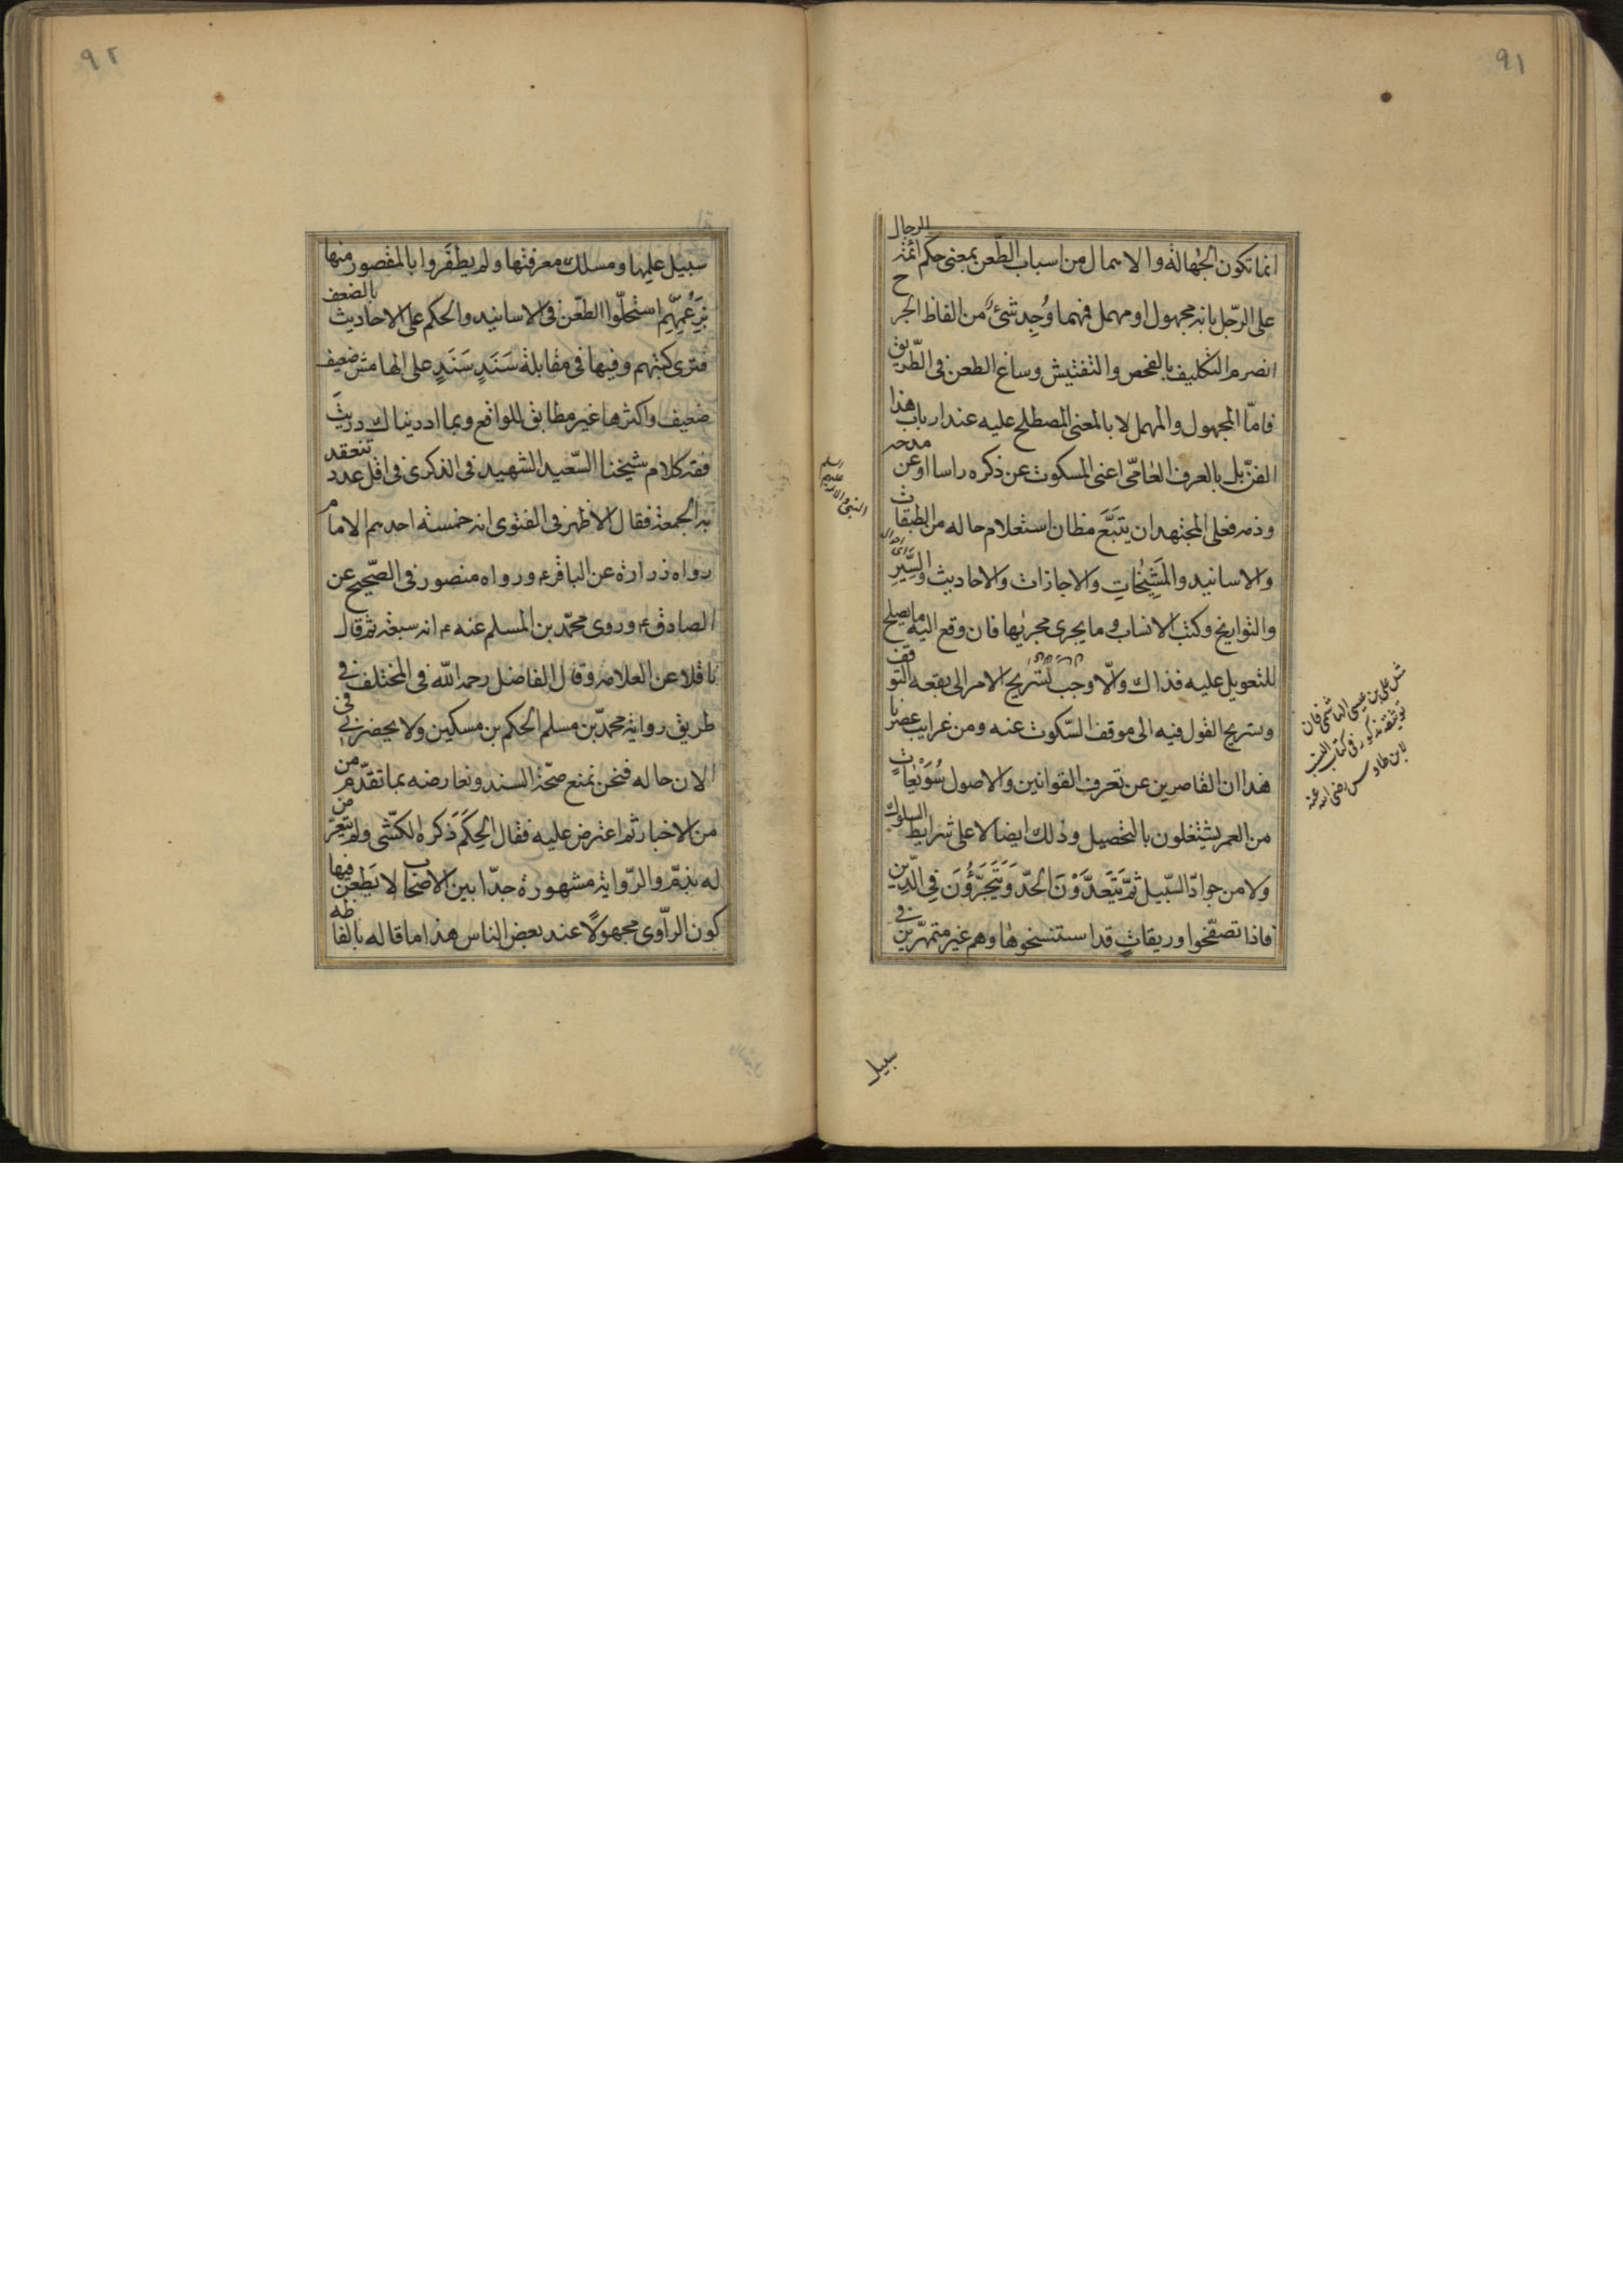 ٩١
انما تكون الجهالة والاهمال من اسباب الطعن بمعنى حكم ائمة الرجال
على الرّجل بانه مجهول او مهمل فمهما وُجِد شئٌ من الفاظ الجرح
انصرم التكليف بالفحص والتفتيش وساغ الطعن فى الطّريق
فامّا المجهول والمهمل لا بالمعنى المصطلح عليه عند ارباب هذا
الفنّ بل بالعرف العامّى اعنى المسكوت عن ذكره راسا او عن مدحه
وذمه فعلى المجتهد ان يتَبَّعَ مظان استعلام حاله من الطبقات
والاسانيد والمَشِيْخاتِ والاجازات والاحاديث والسِّيَرِ
والتواريخ وكتب الانساب وما يجرى مجريها فان وقع اليه ما يصلح
للتعويل عليه فذاك والّا وجب تسريح الامر الى بقعه التوقف
وتسريح القول فيه الى موقف السّكوت عنه ومن غرايب عصرنا
هذا ان القاصرين عن تعرف القوانين والاصول سُوَيْعاتٍ
من العمر يشتغلون بالتحصيل وذلك ايضا لا على شرايط السلوك
ولا من جوادّ السّبيل ثمّ يَتَعدَّوْنَ الحدّ وَيَتَجَرَّؤُنَ فِى الدِّينِ
فاذا تصفّحوا وريقاتٍ قد استنسخوها وهم غير متمهّرين فى
سبيل
النبى والائمه عليهم السلم
مثل على بن عيسى الهاشمى فان
توثيقه مذكور فى كتاب
لابن طاوس رضى الله عنه
٩٢
سبيل علمِها ومسلك معرفتها ولم يظفَروا بالمقصود منها
بِزَعْمِهِم استحلّوا الطعن فى الاسانيد والحكم على الاحاديث بالضعف
فترى كتبهم وفيها فى مقابلة سَنَدٍ سَنَدٍ على الهامش ضعيف
ضعيف واكثرها غير مطابق للواقع وبما ادريناك دريتَ
فقه كلام شيخنا السّعيد الشهيد فى الذكرى فى اقل عدد تنعقد
به الجمعة فقال الاظهر فى الفتوى انه خمسة احدهم الامام
رواه زرارة عن الباقر ع ورواه منصور فى الصّحيح عن
الصادق ع وروى محمّد بن المسلم عنه ع انه سبعة ثم قال
ناقلا عن العلامه وقال الفاضل رحمه اللّه فى المختلف فى
طريق رواية محمّد بن مسلم الحكم بن مسكين ولا يحضرنى
الان حاله فنحن نمنع صحّة السند ونعارضه بما تقدّم من
من الاخبار ثم اعترض عليه فقال الحكم ذكره الكشّى ولم يتعرّض
له بذمّ والرّواية مشهورة جدّا بين الاصحاب لا يَطعن فيها
كون الرّاوى مجهولًا عند بعض الناس هذا ما قاله بالفاظه